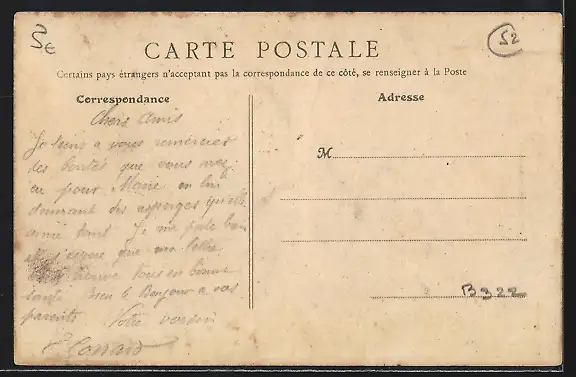 5€
52
CARTE POSTALE
Certains pays étrangers n'acceptant pas la correspondance de ce côté, se renseigner à la Poste
Correspondance
Adresse
Chers Amis
Je tiens a vous remercier
des bontés que vous avez
eu pour Marie en lui
donnant des asperges qu'elle
aime tant. Je me porte bien
et j'espère que ma lettre
trouve tous en bonne
santé bien le Bonjour a vos
parents Votre voisin
M
B322